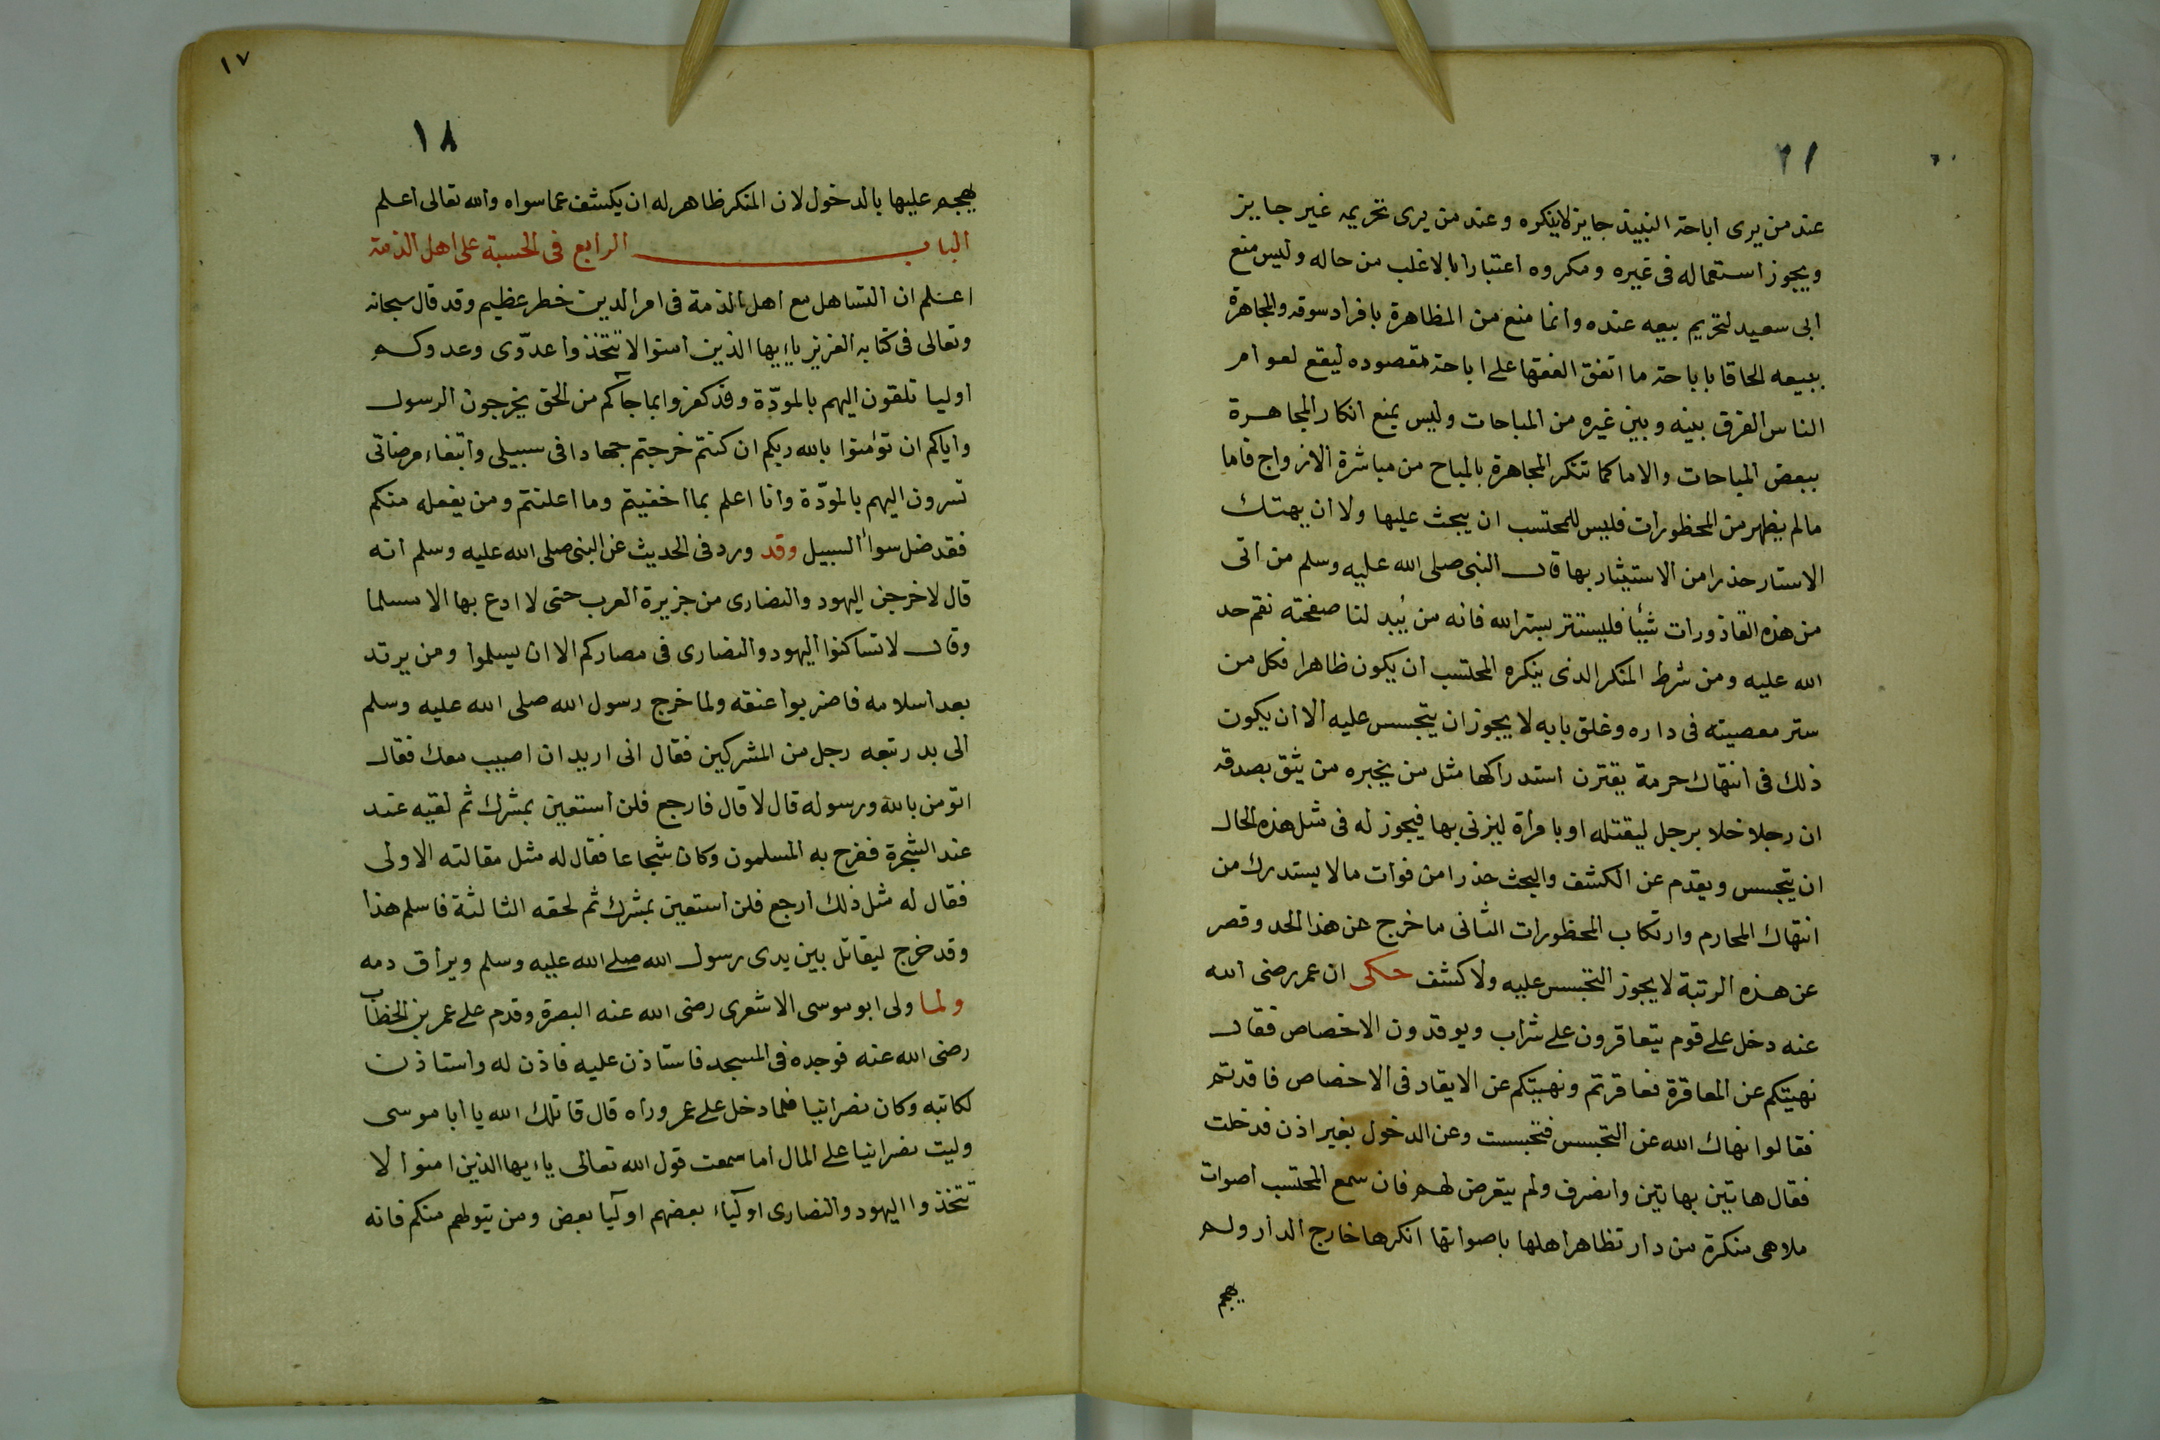 ٢١
عند من يرى اباحة النبيذ جايز لاينكره وعند من يرى تحريمه غير جايز
ويجوز استعماله فى غيره ومكروه اعتبارا بالاغلب من حاله وليس منع
ابى سعيد لتحريم بيعه عنده وانما منع من المظاهرة بافراد سوقه والمجاهرة
ببيعه الحاقا باباحة ما اتفق الفقها على اباحة مقصوده ليقع لعوام
الناس الفرق بينه وبين غيره من المباحات وليس يمنع انكار المجاهرة
ببعض المباحات والاما كما تنكر المجاهرة بالمباح من مباشرة الازواج فاما
مالم يظهر من المحظورات فليس للمحتسب ان يبحث عليها ولا ان يهتك
الاستار حذرا من الاستيثار بها قال النبى صلى الله عليه وسلم من اتى
من هذه القاذورات شيئا فليستتر بستر الله فانه من يُبد لنا صفحته نقم حد
الله عليه ومن شرط المنكر الذى ينكره المحتسب ان يكون ظاهرا فكل من
ستر معصيته فى داره وغلق بابه لا يجوز ان يتجسس عليه الا ان يكون
ذلك فى انتهاك حرمة يقترن استدراكها مثل من يخبره من يثق بصدقه
ان رجلا خلا برجل ليقتله او بامراة ليزنى بها فيجوز له فى مثل هذه الحال
ان يتجسس ويقدم عن الكشف والبحث حذرا من فوات مالا يستدرك من
انتهاك المحارم وارتكاب المحظورات الثانى ما خرج عن هذا الحد وقصر
عن هذه الرتبة لا يجوز التجسس عليه ولا كشف حكى ان عمر رضى الله
عنه دخل على قوم يتعاقرون على شراب ويوقدون الاخصاص فقال
نهيتكم عن المعاقرة فعاقرتم ونهيتكم عن الايقاد فى الاخصاص فاقدتم
فقالوا نهاك الله عن التجسس فتجسست وعن الدخول بغير اذن فدخلت
فقال هاتين بهاتين وانصرف ولم يتعرض لهم فان سمع المحتسب اصوات
ملاهى منكرة من دار تظاهر اهلها باصواتها انكرها خارج الدار ولم
يهجم
١٧
١٨
يهجم عليها بالدخول لان المنكر ظاهر له ان يكشف عما سواه والله تعالى اعلم
الباب الرابع فى الحسبة على اهل الذمة
اعلم ان التساهل مع اهل الذمة فى امر الدين خطر عظيم وقد قال سبحانه
وتعالى فى كتابه العزيز ياءيها الذين امنوا لا تتخذوا عدوّى وعدوكم
اوليا تلقون اليهم بالمودّة وقد كفروا بما جآكم من الحق يخرجون الرسول
واياكم ان تؤمنوا بالله ربكم ان كنتم خرجتم جهادا فى سبيلى وابتغاء مرضاتى
تسرون اليهم بالمودّة وانا اعلم بما اخفيتم وما اعلنتم ومن يفعله منكم
فقد ضل سواء السبيل وقد ورد فى الحديث عن النبى صلى الله عليه وسلم انه
قال لاخرجن اليهود والنصارى من جزيرة العرب حتى لا ادع بها الا مسلما
وقال لا تساكنوا اليهود والنصارى فى مصاركم الا ان يسلموا ومن يرتد
بعد اسلامه فاضربوا عنقه ولما خرج رسول الله صلى الله عليه وسلم
الى بدر تبعه رجل من المشركين فقال انى اريد ان اصيب معك فقال
اتومن بالله ورسوله قال لا قال فارجع فلن استعين بمشرك ثم لقيه عند
عند الشجرة ففرح به المسلمون وكان شجاعا فقال له مثل مقالته الاولى
فقال له مثل ذلك ارجع فلن استعين بمشرك ثم لحقه الثالثة فاسلم هذا
وقد خرج ليقاتل بين يدى رسول الله صلى الله عليه وسلم ويراق دمه
ولما ولى ابو موسى الاشعرى رضى الله عنه البصرة وقدم على عمر بن الخطاب
رضى الله عنه فوجده فى المسجد فاستاذن عليه فاذن له واستاذن
لكاتبه وكان نصرانيا فلما دخل على عمر وراه قال قاتلك الله يا ابا موسى
وليت نصرانيا على المال اما سمعت قول الله تعالى ياءيها الذين امنوا لا
تتخذوا اليهود والنصارى اوليآء بعضهم اوليآ بعض ومن يتولهم منكم فانه